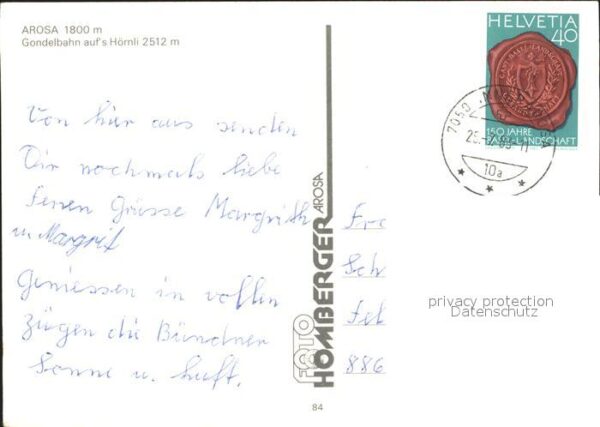 AROSA 1800 m
Gondelbahn auf's Hörnli 2512 m
HELVETIA
40
150 JAHRE
BASEL-LANDSCHAFT
7050
10a
Von hier aus senden
Dir nochmals liebe
Ferien Grüsse Margrith
u. Margrit
Geniessen in vollen
zügen die Bündner
Sonne u. Luft.
FOTO
HOMBERGER AROSA
Fra
Sch
Fel
886
privacy protection
Datenschutz
84